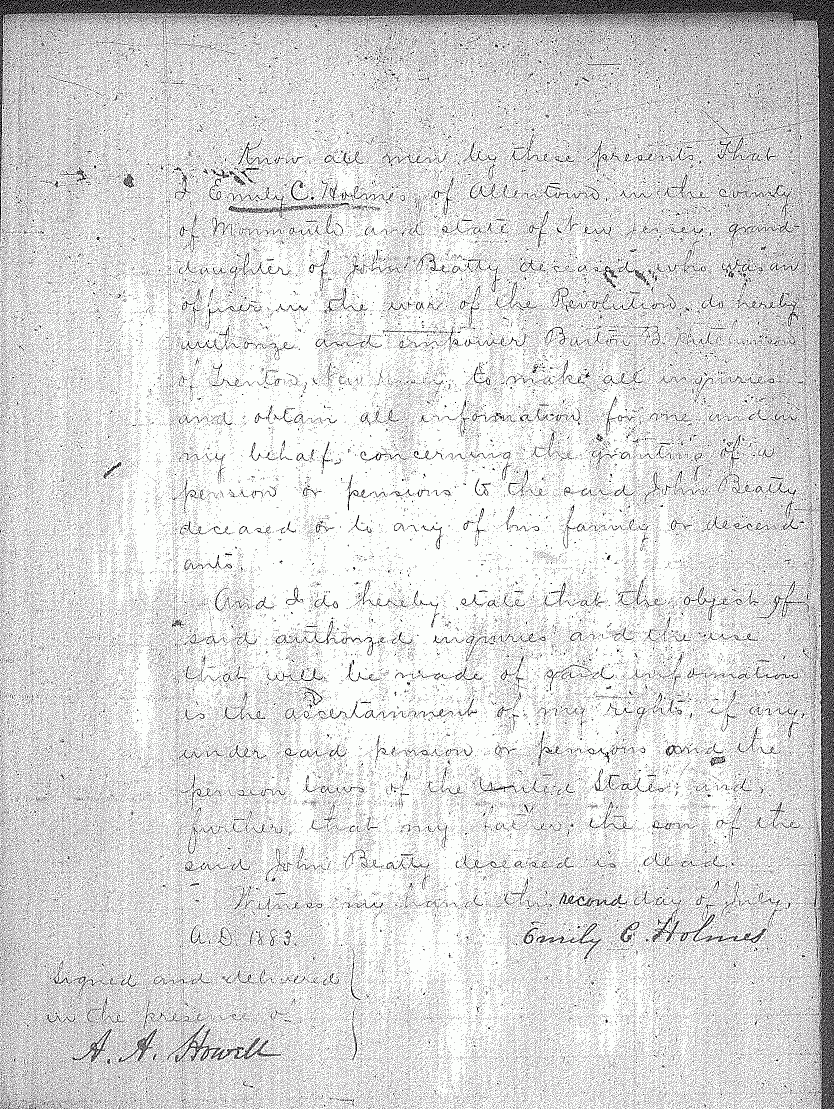 Know all men by these presents, That
I Emily C. Holmes, of Allentown, in the county
of Monmouth and state of New Jersey, grand-
daughter of John Beatty deceased, who was an
officer in the war of the Revolution, do hereby
authorize and empower Barton B. Hutchinson
of Trenton, New Jersey, to make all inquiries
and obtain all information for me and in
my behalf, concerning the granting of a
pension or pensions to the said John Beatty
deceased or to any of his family or descend-
ants.
And I do hereby state that the object of
said authorized inquiries and the use
that will be made of said information
is the ascertainment of my rights, if any,
under said pension or pensions and the
pension laws of the United States; and,
further, that my father, the son of the
said John Beatty deceased is dead.
Witness my hand this second day of July,
A.D. 1883.
Emily C. Holmes
Signed and delivered
in the presence of
A. A. Howell